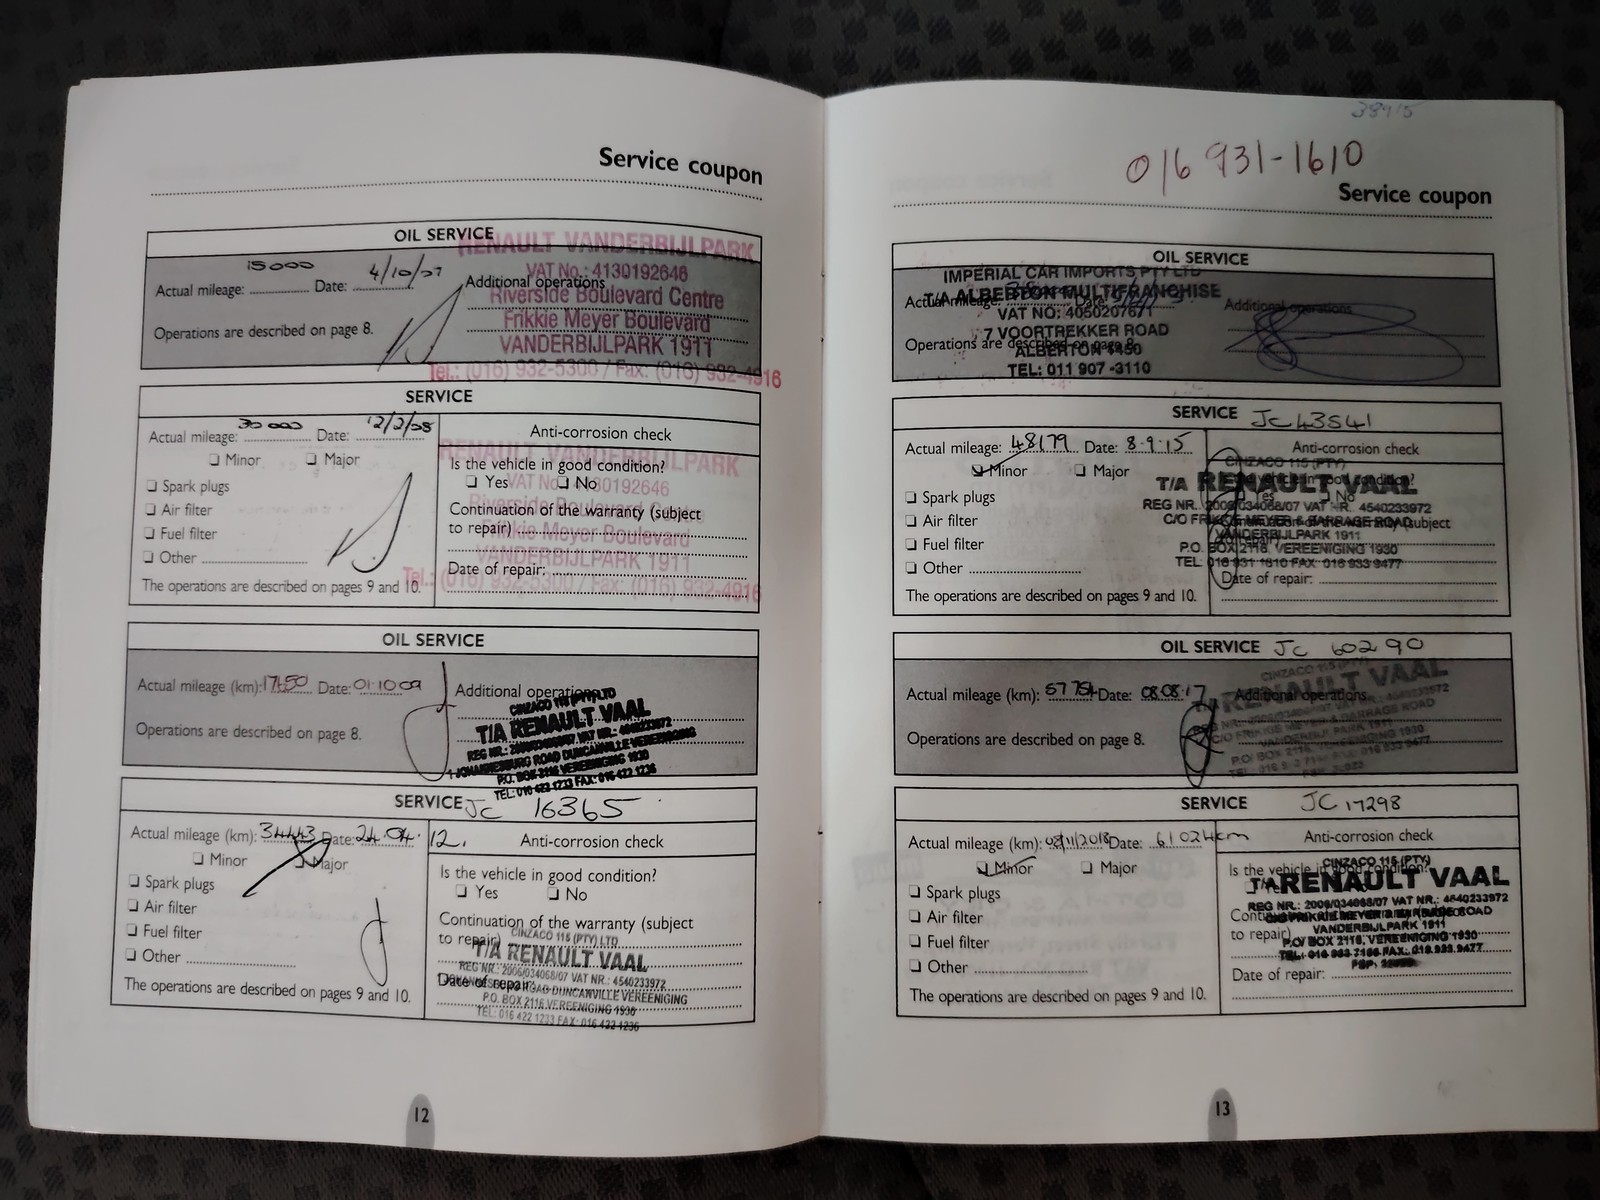 Service coupon
OIL SERVICE
RENAULT VANDERBIJLPARK
15000
4/10/07
Actual mileage: Date:
Additional operations
VAT No.: 4130192646
Riverside Boulevard Centre
Operations are described on page 8.
Frikkie Meyer Boulevard
VANDERBIJLPARK 1911
Tel.: (016) 932-5300 / Fax: (016) 932-4916
SERVICE
30000
12/2/08
Actual mileage: Date:
Anti-corrosion check
RENAULT VANDERBIJLPARK
Minor Major
Is the vehicle in good condition?
Yes No
VAT No.: 4130192646
Spark plugs
Riverside Boulevard Centre
Air filter
Continuation of the warranty (subject
to repair)
Frikkie Meyer Boulevard
Fuel filter
VANDERBIJLPARK 1911
Other
Date of repair:
Tel.: (016) 932-5300 / Fax: (016) 932-4916
The operations are described on pages 9 and 10.
OIL SERVICE
Actual mileage (km): Date: 01.10.09
Additional operations
CINZACO 115 (PTY) LTD
T/A RENAULT VAAL
Operations are described on page 8.
REG NR.: 2006/034068/07 VAT NR.: 4540233972
JOHANNESBURG ROAD DUNCANVILLE VEREENIGING
P.O. BOX 2116 VEREENIGING 1930
TEL: 016 422 1233 FAX: 016 422 1236
SERVICE JC 16365
Actual mileage (km): 34443 Date: 24.04.12.
Anti-corrosion check
Minor Major
Is the vehicle in good condition?
Yes No
Spark plugs
Air filter
Continuation of the warranty (subject
to repair)
Fuel filter
CINZACO 115 (PTY) LTD
T/A RENAULT VAAL
Other
REG NR.: 2006/034068/07 VAT NR.: 4540233972
Date of repair:
JOHANNESBURG ROAD DUNCANVILLE VEREENIGING
The operations are described on pages 9 and 10.
P.O. BOX 2116 VEREENIGING 1930
TEL: 016 422 1233 FAX: 016 422 1236
12
38915
016 931-1610
Service coupon
OIL SERVICE
IMPERIAL CAR IMPORTS PTY LTD
Actual mileage: Date:
T/A ALBERTON MULTIFRANCHISE
Additional operations
VAT NO: 4050207671
7 VOORTREKKER ROAD
Operations are described on page 8.
ALBERTON 1450
TEL: 011 907 -3110
SERVICE JC 43541
Actual mileage: 48179 Date: 8.9.15
Anti-corrosion check
Minor Major
CINZACO 115 (PTY)
Is the vehicle in good condition?
Yes No
T/A RENAULT VAAL
Spark plugs
REG NR. 2006/034068/07 VAT NR. 4540233972
Air filter
C/O FRIKKIE MEYER & BARRAGE ROAD
VANDERBIJLPARK 1911
Fuel filter
P.O. BOX 2116, VEREENIGING 1930
TEL 016 931 1610 FAX 016 933 9477
Other
Date of repair:
The operations are described on pages 9 and 10.
OIL SERVICE JC 60290
CINZACO 115 (PTY)
Actual mileage (km): Date: 08.08.17
Additional operations
RENAULT VAAL
C/O FRIKKIE MEYER & BARRAGE ROAD
Operations are described on page 8.
VANDERBIJLPARK 1911
P.O. BOX 2116, VEREENIGING 1930
SERVICE JC 17298
Actual mileage (km): 08/11/2018 Date: 61024km
Anti-corrosion check
Minor Major
Is the vehicle in good condition?
CINZACO 115 (PTY)
T/A RENAULT VAAL
Spark plugs
REG NR.: 2006/034068/07 VAT NR.: 4540233972
Air filter
C/O FRIKKIE MEYER & BARRAGE ROAD
to repair)
VANDERBIJLPARK 1911
Fuel filter
P.O/ BOX 2116, VEREENIGING 1930
TEL: 016 933 7166 FAX: 016 933 9477
Other
Date of repair:
The operations are described on pages 9 and 10.
13